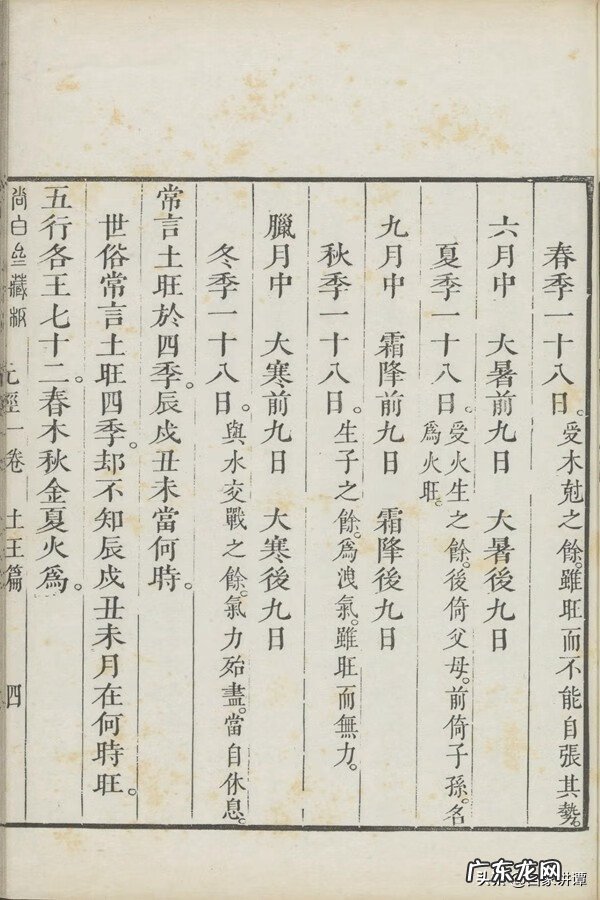 春季一十八日。受木尅之餘。雖旺而不能自張其勢。
六月中　大暑前九日　大暑後九日
夏季一十八日。受火生之餘。後倚父母。前倚子孫。名
為火旺。
九月中　霜降前九日　霜降後九日
秋季一十八日。生子之餘。為洩氣。雖旺而無力。
臘月中　大寒前九日　大寒後九日
冬季一十八日。與水交戰之餘。氣力殆盡。當自休息。
常言土旺於四季。辰戍丑未當何時。
世俗常言土旺四季。却不知辰戍丑未月在何時旺。
五行各王七十二。春木秋金夏火為。
尚白齋藏板　元經一卷　土王篇　四
广东龙网